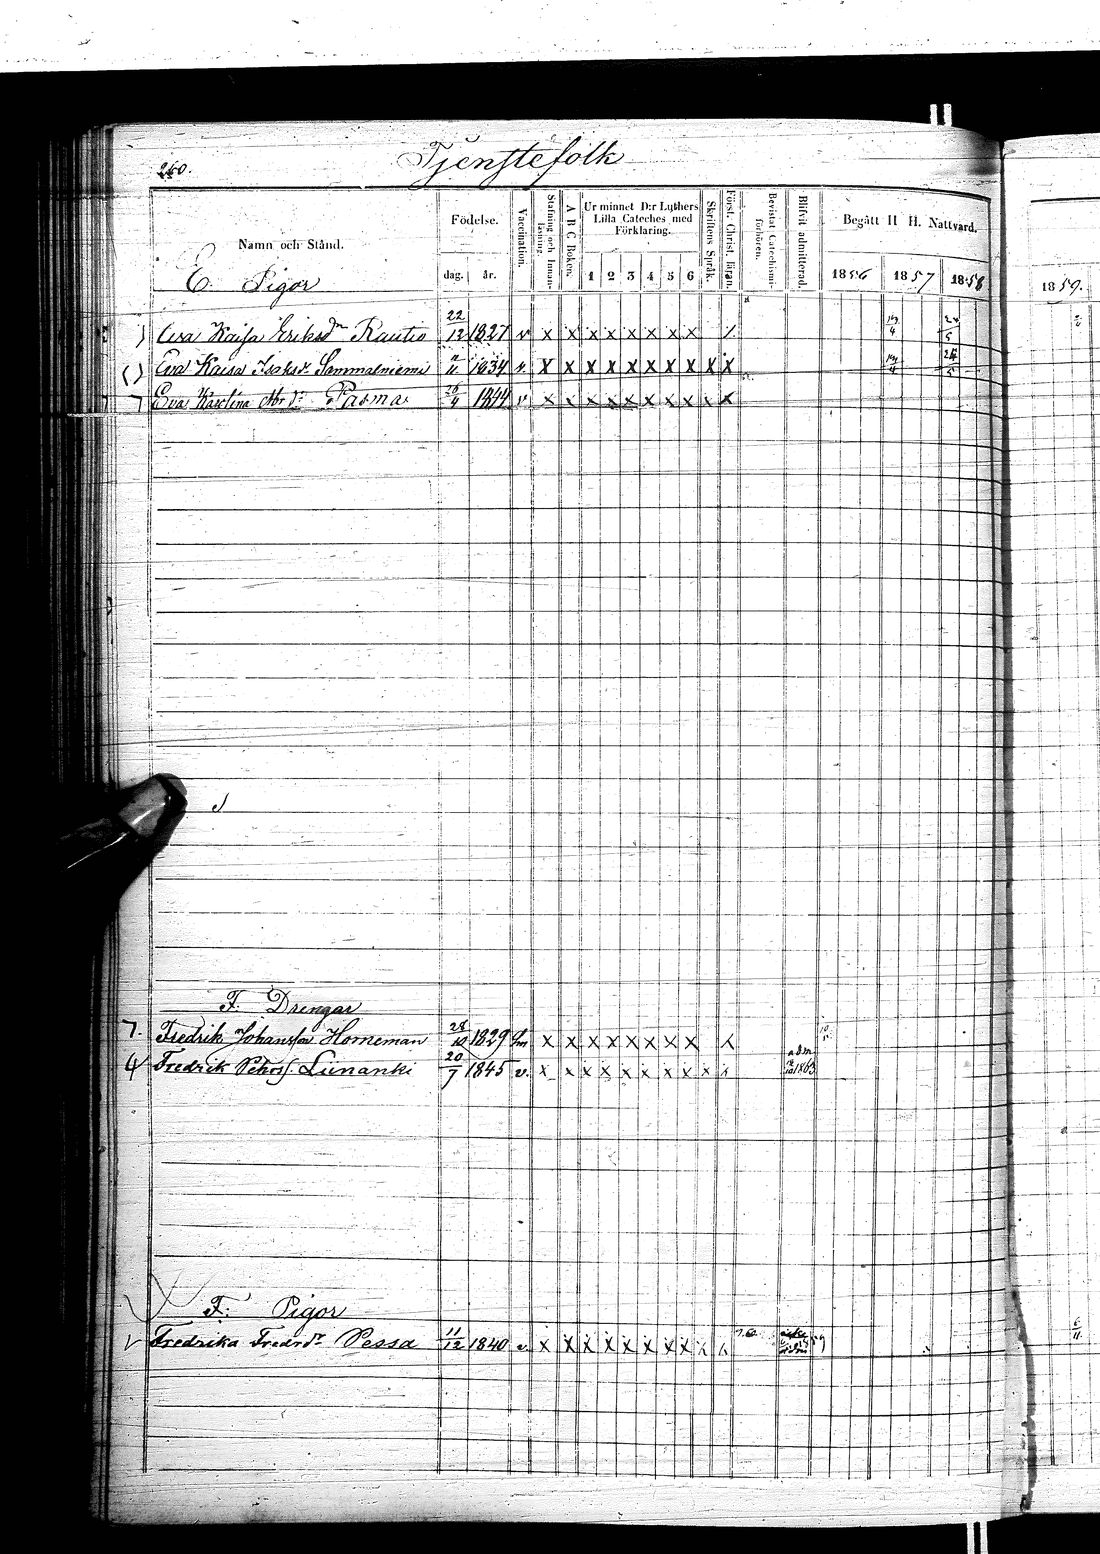 260.
Tjenstefolk
Namn och Stånd.
Födelse.
dag. år.
Vaccination.
Stafning och Innanläsning.
A B C Boken.
Ur minnet D:r Luthers Lilla Cateches med Förklaring.
1 2 3 4 5 6
Skriftens Språk.
Först. Christ. läran.
Bevistat Catechismiförhören.
Blifvit admitterad.
Begått H H. Nattvard.
1856 1857 1858
1859.
E. Pigor
Eva Kaisa Eriksdr Rautio 22/12 1827 v x x x x x x x x
Eva Kaisa Isaksdr Sammalniemi 11 1834 v. x x x x x x x x x x
Eva Karolina Abr.dr Pasma 4 1844 v x x x x x x x x x x
F. Drengar
7. Fredrik Johansson Horneman 28/10 1829 x x x x x x x x
Fredrik Pehrs. Liinanki 20/7 1845 v. x x x x x x x x x adm. 1863
F: Pigor
Fredrika Fredrdr Pessa 11/12 1840 v. x x x x x x x x 59